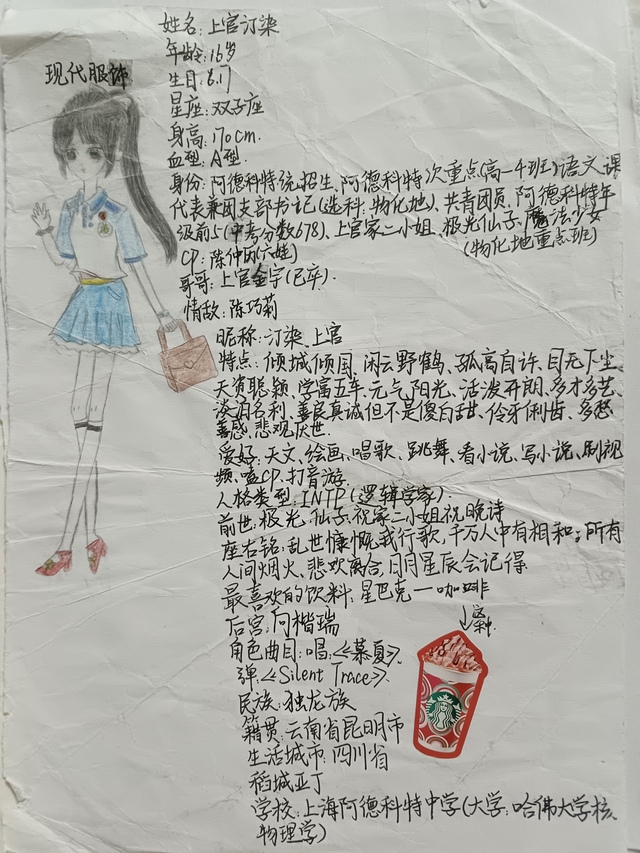 现代服饰
姓名:上官汀染
年龄:16岁
生日:6.17
星座:双子座
身高:170cm.
血型:A型.
身份:阿德科特统招生、阿德科特次重点(高一4班)语文课
代表兼团支部书记(选科:物化地)、共青团员、阿德科特年
级前5(中考分数678)、上官家二小姐、极光仙子、魔法少女
(物化地重点班)
CP:陈仲的(六娃)
哥哥:上官金宇(已卒).
情敌:陈巧莉
昵称:汀染、上官
特点:倾城倾国、闲云野鹤、孤高自许、目无下尘、
天资聪颖、学富五车、元气阳光、活泼开朗、多才多艺、
淡泊名利、善良真诚但不是傻白甜、伶牙俐齿、多愁
善感、悲观厌世.
爱好:天文、绘画、唱歌、跳舞、看小说、写小说、刷视
频、嗑CP、打音游.
人格类型:INTP(逻辑学家).
前世:极光仙子、祝家二小姐祝晚诗
座右铭:乱世慷慨我行歌,千万人中有相和;所有
人间烟火、悲欢离合,日月星辰会记得
最喜欢的饮料:星巴克一咖啡
↓这种
后宫:向楷瑞
角色曲目:唱:《慕夏》.
弹:《Silent Trace》.
民族:独龙族
籍贯:云南省昆明市
生活城市:四川省
稻城亚丁
学校:上海阿德科特中学(大学:哈佛大学核
物理学)